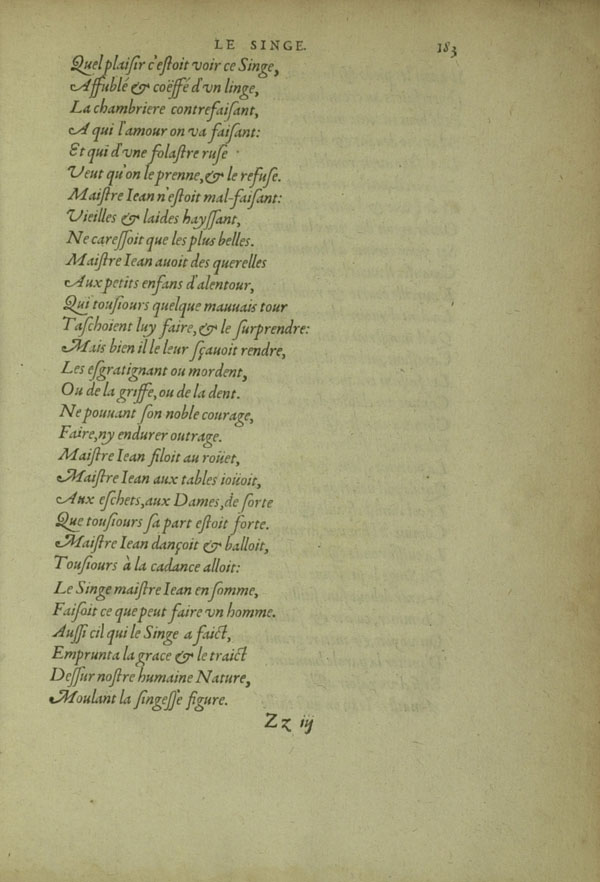 LE SINGE. 183
Quel plaiſir c'eſtoit voir ce Singe,
Affublé & coëffé d'vn linge,
La chambriere contrefaiſant,
A qui l'amour on va faiſant:
Et qui d'vne folaſtre ruſe
Veut qu'on le prenne, & le refuſe.
Maiſtre Iean n'eſtoit mal-faiſant:
Vieilles & laides hayſſant,
Ne careſſoit que les plus belles.
Maiſtre Iean auoit des querelles
Aux petits enfans d'alentour,
Qui touſiours quelque mauuais tour
Taſchoient luy faire, & le ſurprendre:
Mais bien il le leur ſçauoit rendre,
Les eſgratignant ou mordent,
Ou de la griffe, ou de la dent.
Ne pouuant ſon noble courage,
Faire, ny endurer outrage.
Maiſtre Iean filoit au roüet,
Maiſtre Iean aux tables ioüoit,
Aux eſchets, aux Dames, de ſorte
Que touſiours ſa part eſtoit forte.
Maiſtre Iean dançoit & balloit,
Touſiours à la cadance alloit:
Le Singe maiſtre Iean en ſomme,
Faiſoit ce que peut faire vn homme.
Auſſi cil qui le Singe a faict,
Emprunta la grace & le traict
Deſſur noſtre humaine Nature,
Moulant la ſingeſſe figure.
Zz iij